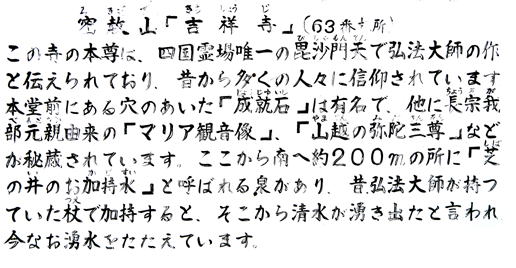 密教山「吉祥寺」(63番札所)
この寺の本尊は、四国霊場唯一の毘沙門天で弘法大師の作
と伝えられており、昔から多くの人々に信仰されています
本堂前にある穴のあいた「成就石」は有名で、他に長宗我
部元親由来の「マリア観音像」、「山越の弥陀三尊」など
が秘蔵されています。ここから南へ約200mの所に「芝
の井のお加持水」と呼ばれる泉があり、昔弘法大師が持つ
ていた杖で加持すると、そこから清水が湧き出たと言われ
今なお湧水をたたえています。